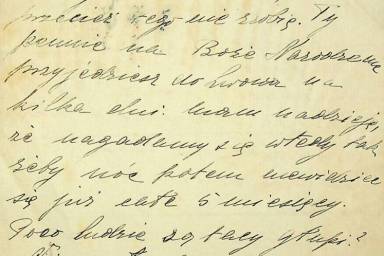 przecież tego nie zrobię. Ty
pewnie na Boże Narodzenie
przyjedziesz do Lwowa na
kilka dni. Mam nadzieję,
że nagadamy się wtedy tak
żeby móc potem niewidzieć
się już całe 5 miesięcy.
Poco ludzie są tacy głupi?